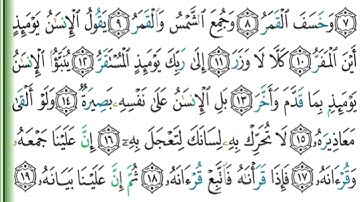 ٧ وَخَسَفَ ٱلْقَمَرُ ٨ وَجُمِعَ ٱلشَّمْسُ وَٱلْقَمَرُ ٩ يَقُولُ ٱلْإِنسَٰنُ يَوْمَئِذٍ
أَيْنَ ٱلْمَفَرُّ ١٠ كَلَّا لَا وَزَرَ ١١ إِلَىٰ رَبِّكَ يَوْمَئِذٍ ٱلْمُسْتَقَرُّ ١٢ يُنَبَّؤُا۟ ٱلْإِنسَٰنُ
يَوْمَئِذٍۭ بِمَا قَدَّمَ وَأَخَّرَ ١٣ بَلِ ٱلْإِنسَٰنُ عَلَىٰ نَفْسِهِۦ بَصِيرَةٌ ١٤ وَلَوْ أَلْقَىٰ
مَعَاذِيرَهُۥ ١٥ لَا تُحَرِّكْ بِهِۦ لِسَانَكَ لِتَعْجَلَ بِهِۦٓ ١٦ إِنَّ عَلَيْنَا جَمْعَهُۥ
وَقُرْءَانَهُۥ ١٧ فَإِذَا قَرَأْنَٰهُ فَٱتَّبِعْ قُرْءَانَهُۥ ١٨ ثُمَّ إِنَّ عَلَيْنَا بَيَانَهُۥ ١٩